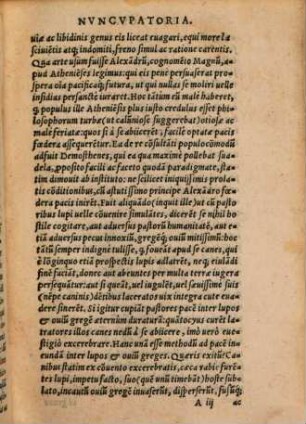 NVNCVPATORIA.
uiæ ac libidinis genus eis liceat euagari, equi more lasciuiẽtis atq; indomiti, freno simul ac ratione carentis.
Qua arte usum fuisse Alexãdrũ, cognomẽto Magnũ, apud Atheniẽses legimus: qui eis pene persuaserat pro-
pterea oĩa pacificaq; futura, ut qui nullas se moliri uelle
insidias persanctè iuraret. Hoc tãtum eũ malè haberet,
q populus ille Atheniẽsis plus iusto credulus esset phi
losophorum turbæ (ut calũniose suggerebat) otiosæ ac
malè feriatæ: quos si à se abijceret, facilè optatæ pacis
fœdera assequerẽtur. Ea de re cõsultãti populo cõmodũ
adfuit Demosthenes, qui ea qua maximè pollebat sua-
dela, proposito facili ac faceto quodã paradigmate, sta-
tim dimouit ab instituto: ne scilicet iniquissimis prola-
tis cõditionibus, cũ astutissimo principe Alexãdro fœ
dera pacis inirẽt. Fuit aliquãdo (inquit ille) ut cũ pasto
ribus lupi uelle cõuenire simulãtes, dicerẽt se nihil ho
stile cogitare, aut aduersus pastorũ humanitatẽ, aut e-
tiã aduersus pecus innocuũ, gregẽq; ouiũ mitissimũ: bo
tatũ semper indignè tulisse, q fouerãt apud se canes, qui
è lõginquo etiã prospectis lupis adlatrẽt, neq; eiulandi
finẽ faciãt, donec aut abeuntes per multa terræ iugera
persequãtur: aut si queãt, uel iugulẽt, uel sæuissimè suis
(nẽpe caninis) dẽtibus laceratos uix integra cute euade
re sinerẽt. Si igitur cupiãt pastores pacẽ inter lupos &
ouiũ gregẽ æternùm duraturã: quãtocyus curẽt la-
tratores illos canes nedũ à se abijcere, imò uerò è ue-
stigio excerebrare. Hanc unã esse methodũ ad pacẽ in
eundã inter lupos & ouiũ greges. Quæris exitũ? Ca-
nibus statim ex cõuento excerebratis, ecce rabie furẽ-
tes lupi, impetu facto, suo (quẽ unũ timebãt) hoste sub-
lato, incautũ ouiũ gregẽ inuaserũt, disperserũt, fusũq;
A iij ac